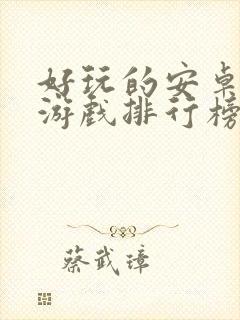 好玩的安卓
游戏排行榜
蔡武璋